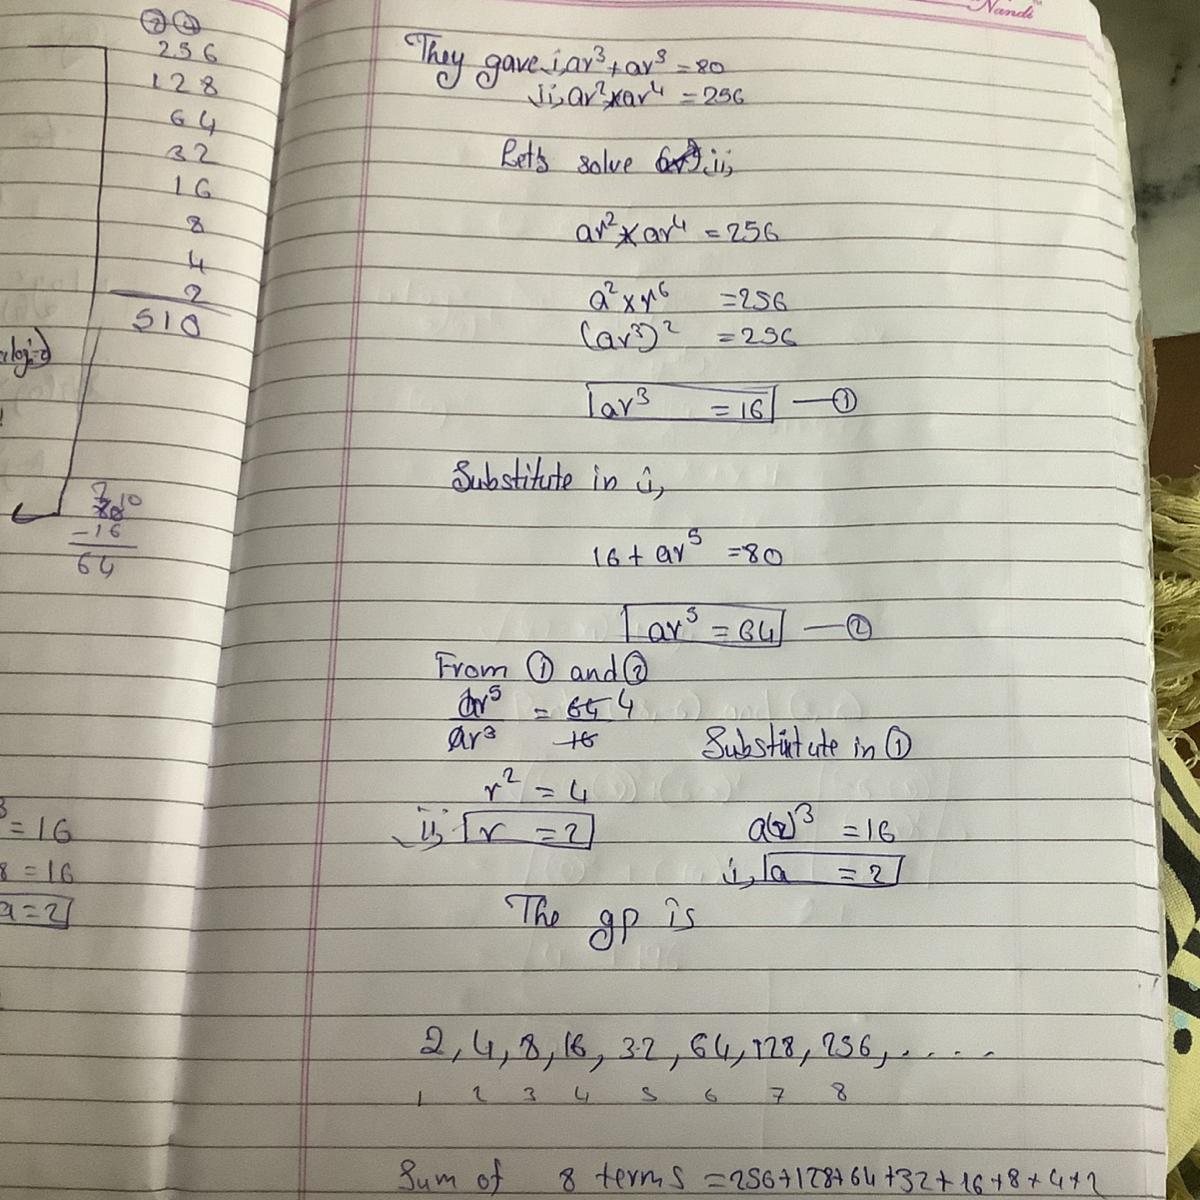 256
128
64
32
16
8
4
2
510
-16
64
= 16
8 = 16
a = 2
Nandi
They gave i, ar³ + ar⁵ = 80
ii, ar² × ar⁴ = 256
Let's solve ii,
ar² × ar⁴ = 256
a² × r⁶ = 256
(ar³)² = 256
ar³ = 16 — ①
Substitute in i,
16 + ar⁵ = 80
ar⁵ = 64 — ②
From ① and ②
ar⁵ = 64 4
ar³ 16
Substitute in ①
r² = 4
ii, r = 2
a(2)³ = 16
i, a = 2
The gp is
2, 4, 8, 16, 32, 64, 128, 256, . . . . .
1 2 3 4 5 6 7 8
Sum of 8 terms = 256+128+64+32+16+8+4+2